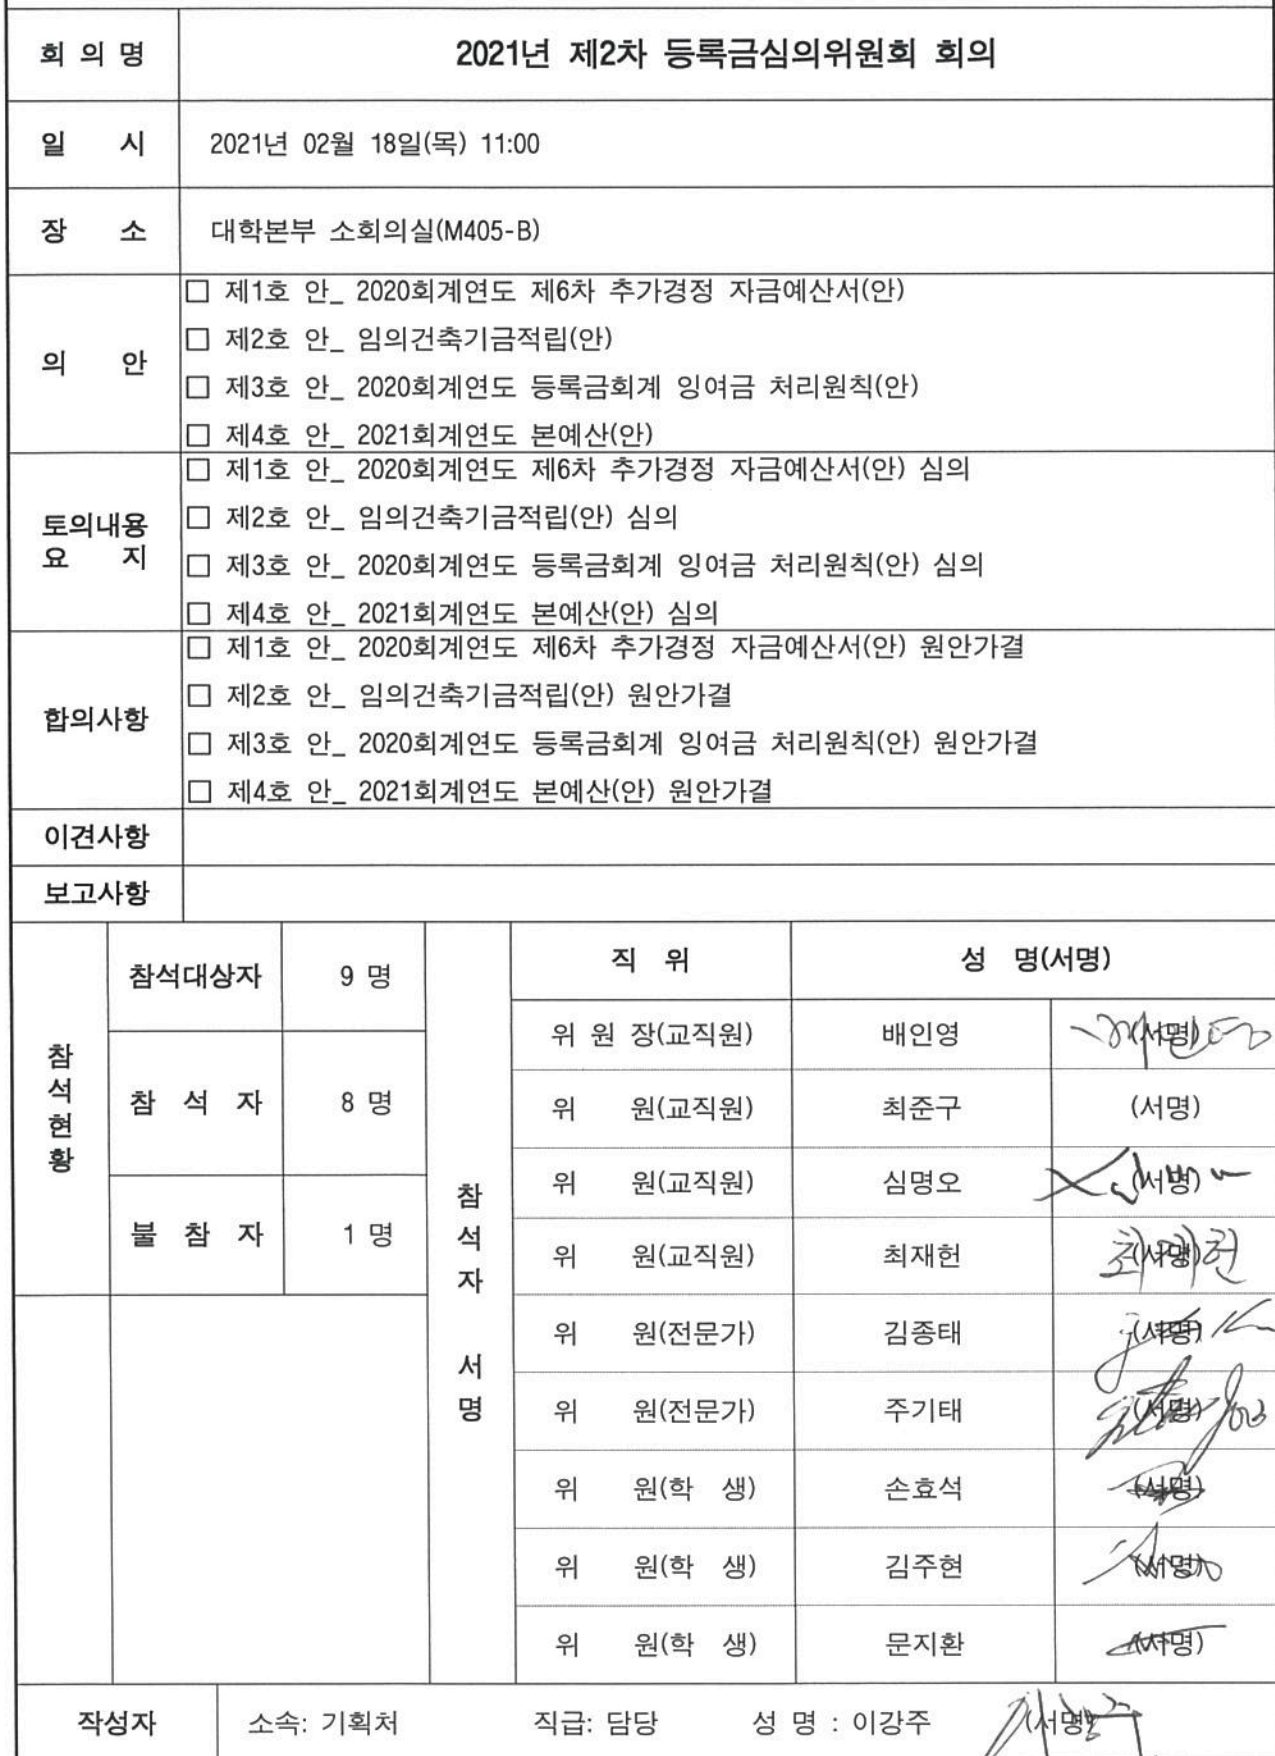 회 의 명
2021년 제2차 등록금심의위원회 회의
일 시
2021년 02월 18일(목) 11:00
장 소
대학본부 소회의실(M405-B)
의 안
□ 제1호 안_ 2020회계연도 제6차 추가경정 자금예산서(안)
□ 제2호 안_ 임의건축기금적립(안)
□ 제3호 안_ 2020회계연도 등록금회계 잉여금 처리원칙(안)
□ 제4호 안_ 2021회계연도 본예산(안)
토의내용
요 지
□ 제1호 안_ 2020회계연도 제6차 추가경정 자금예산서(안) 심의
□ 제2호 안_ 임의건축기금적립(안) 심의
□ 제3호 안_ 2020회계연도 등록금회계 잉여금 처리원칙(안) 심의
□ 제4호 안_ 2021회계연도 본예산(안) 심의
합의사항
□ 제1호 안_ 2020회계연도 제6차 추가경정 자금예산서(안) 원안가결
□ 제2호 안_ 임의건축기금적립(안) 원안가결
□ 제3호 안_ 2020회계연도 등록금회계 잉여금 처리원칙(안) 원안가결
□ 제4호 안_ 2021회계연도 본예산(안) 원안가결
이견사항
보고사항
참석현황
참석대상자 9 명
참 석 자 8 명
불 참 자 1 명
참석자 서명
직 위 성 명(서명)
위 원 장(교직원) 배인영 (서명)
위 원(교직원) 최준구 (서명)
위 원(교직원) 심명오 (서명)
위 원(교직원) 최재헌 (서명) 최재헌
위 원(전문가) 김종태 (서명)
위 원(전문가) 주기태 (서명)
위 원(학 생) 손효석 (서명)
위 원(학 생) 김주현 (서명)
위 원(학 생) 문지환 (서명)
작성자 소속: 기획처 직급: 담당 성 명 : 이강주 (서명)